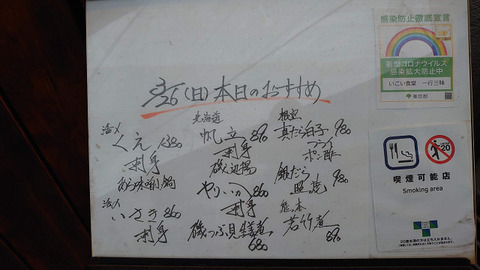 3/26(日)本日のおすすめ
活〆
くえ 1380
刺身
活〆
いさき 860
刺身
北海道
帆立 890
刺身
磯辺揚
やりいか 860
刺身
磯つぶ貝旨煮
680
真だら白子 980
フライ
ポン酢
銀だら 980
照焼
熊本
若竹煮
890
感染防止徹底宣言
新型コロナウイルス
感染拡大防止中
いこい食堂 一行三昧
東京都
喫煙可能店
Smoking area